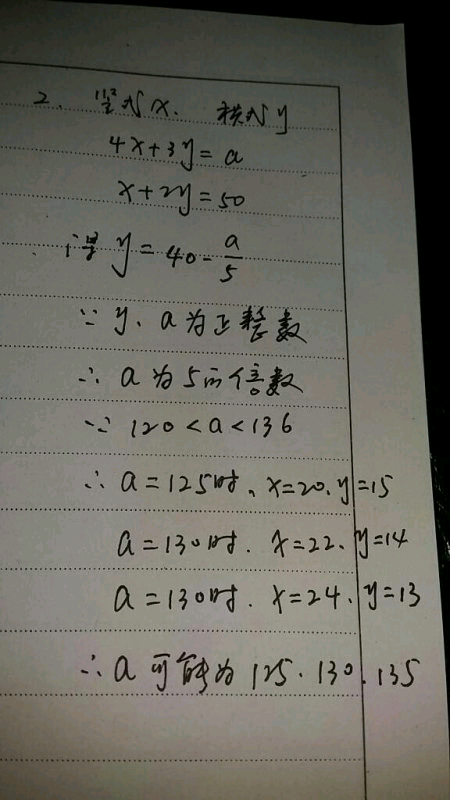 2. 竖式x. 横式y
4x+3y=a
x+2y=50
得 y=40-a/5
∵ y、a为正整数
∴ a为5的倍数
∵ 120<a<136
∴ a=125时、x=20、y=15
a=130时. x=22、y=14
a=130时. x=24、y=13
∴ a可能为125.130.135